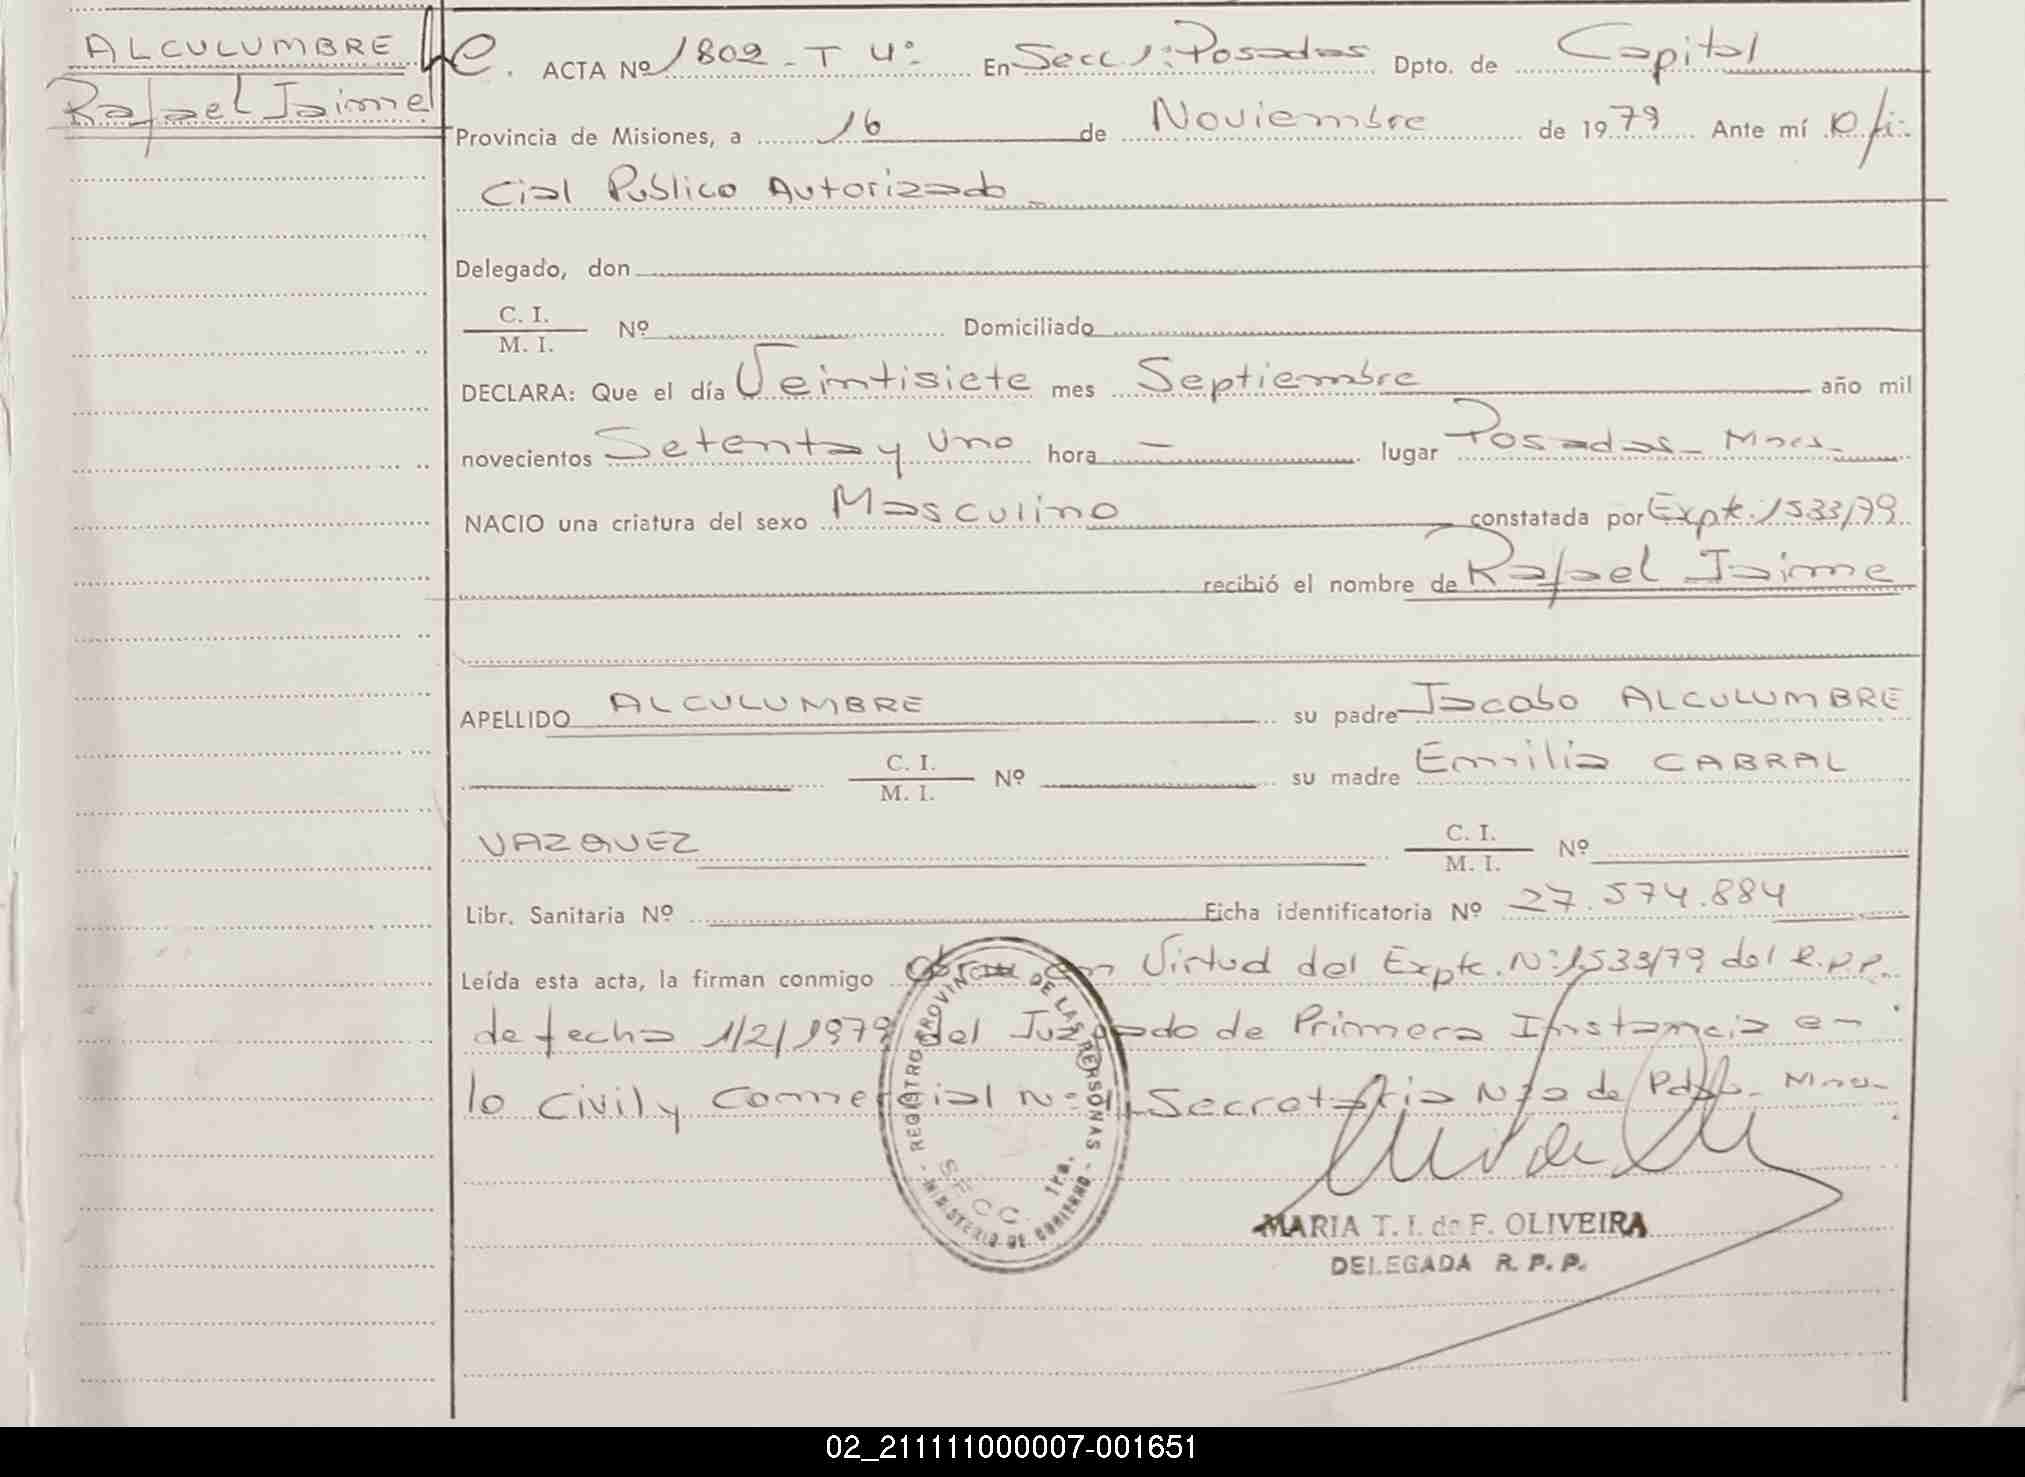 ALCULUMBRE
Rafael Jaime
ACTA Nº 1802 - T 4º En Secc 1º: Posadas Dpto. de Capital
Provincia de Misiones, a 16 de Noviembre de 1979 Ante mí Ofi-
cial Publico Autorizado
Delegado, don
C. I.
M. I. Nº Domiciliado
DECLARA: Que el día Veintisiete mes Septiembre año mil
novecientos Setenta y Uno hora — lugar Posadas - Mnes -
NACIO una criatura del sexo Masculino constatada por Expte. 1533/79
recibió el nombre de Rafael Jaime
APELLIDO ALCULUMBRE su padre Jacobo ALCULUMBRE
C. I.
M. I. Nº su madre Emilia CABRAL
VAZQUEZ C. I.
M. I. Nº
Libr. Sanitaria Nº Ficha identificatoria Nº 27.574.884
Leída esta acta, la firman conmigo en Virtud del Expte. Nº 1533/79 del R.P.P.
de fecha 1/2/1979 del Juzgado de Primera Instancia en
lo Civil y Comercial Nº 1 Secretaria Nº de Pdas - Mnes -
REGISTRO PROVIN DE LAS PERSONAS
SECC. 1ra.
MINISTERIO DE GOBIERNO
MARIA T. I. de F. OLIVEIRA
DELEGADA R. P. P.
02_211111000007-001651